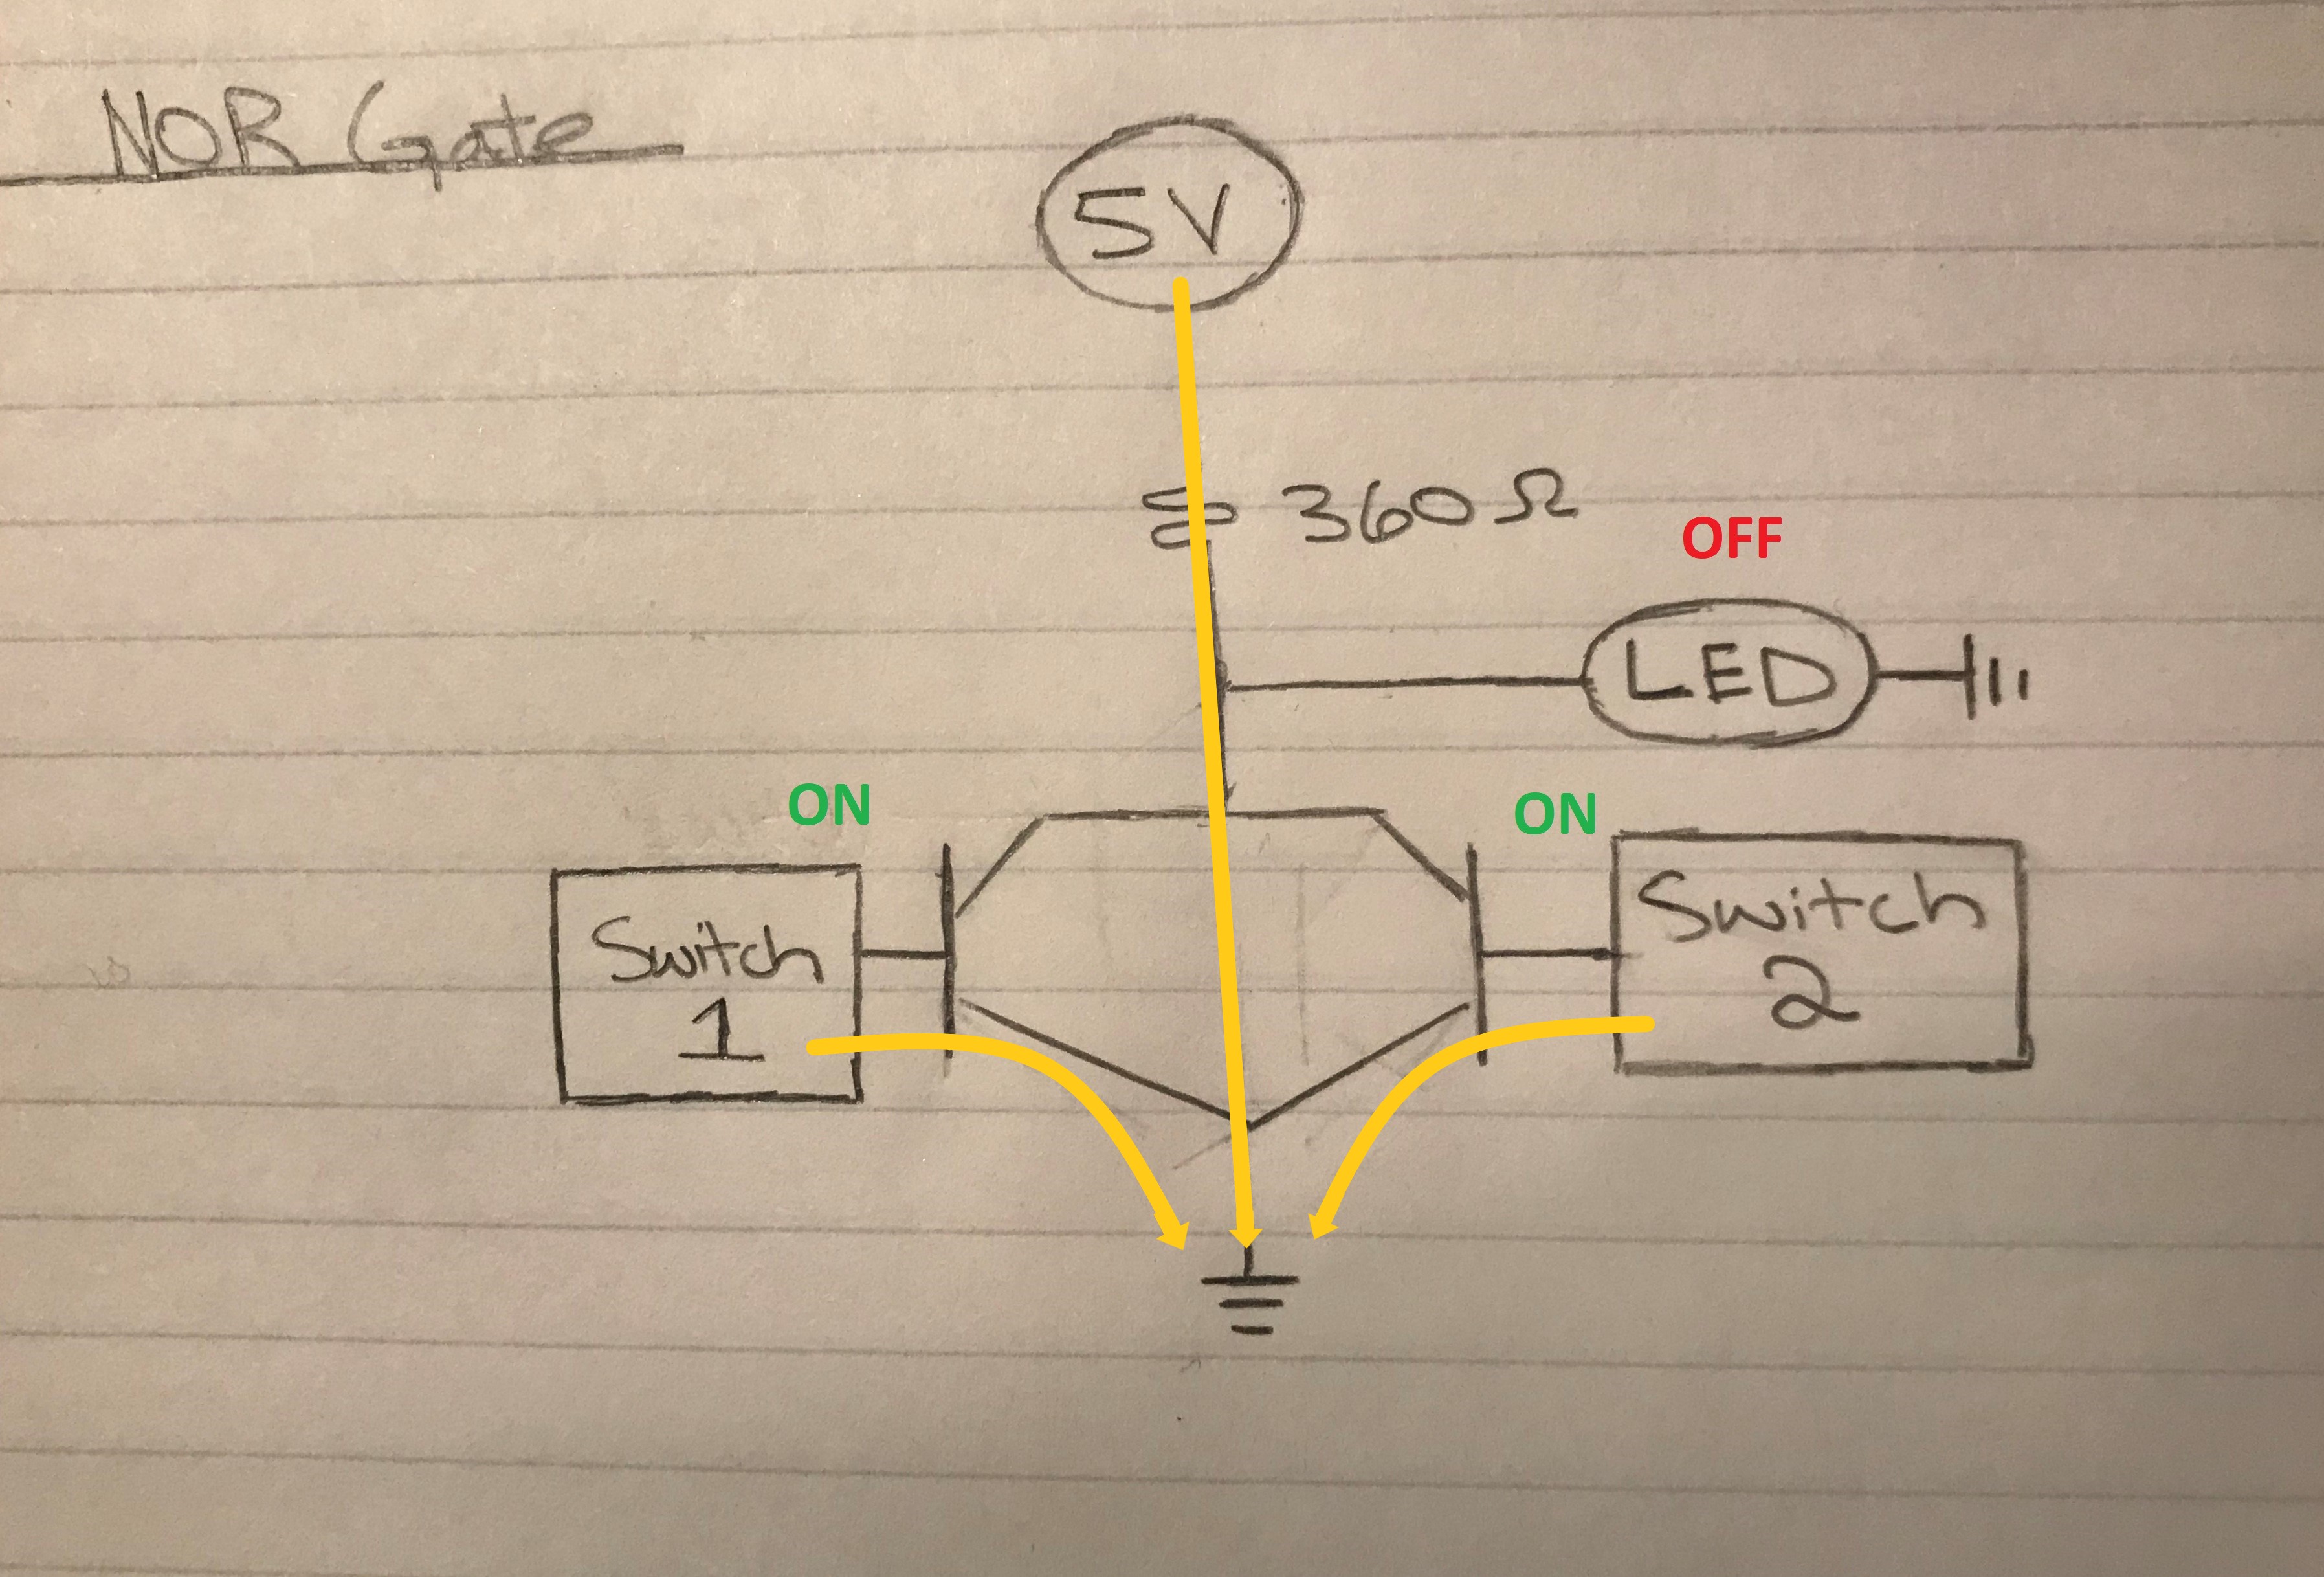 NOR Gate
5V
360Ω
OFF
LED
ON
ON
Switch
1
Switch
2